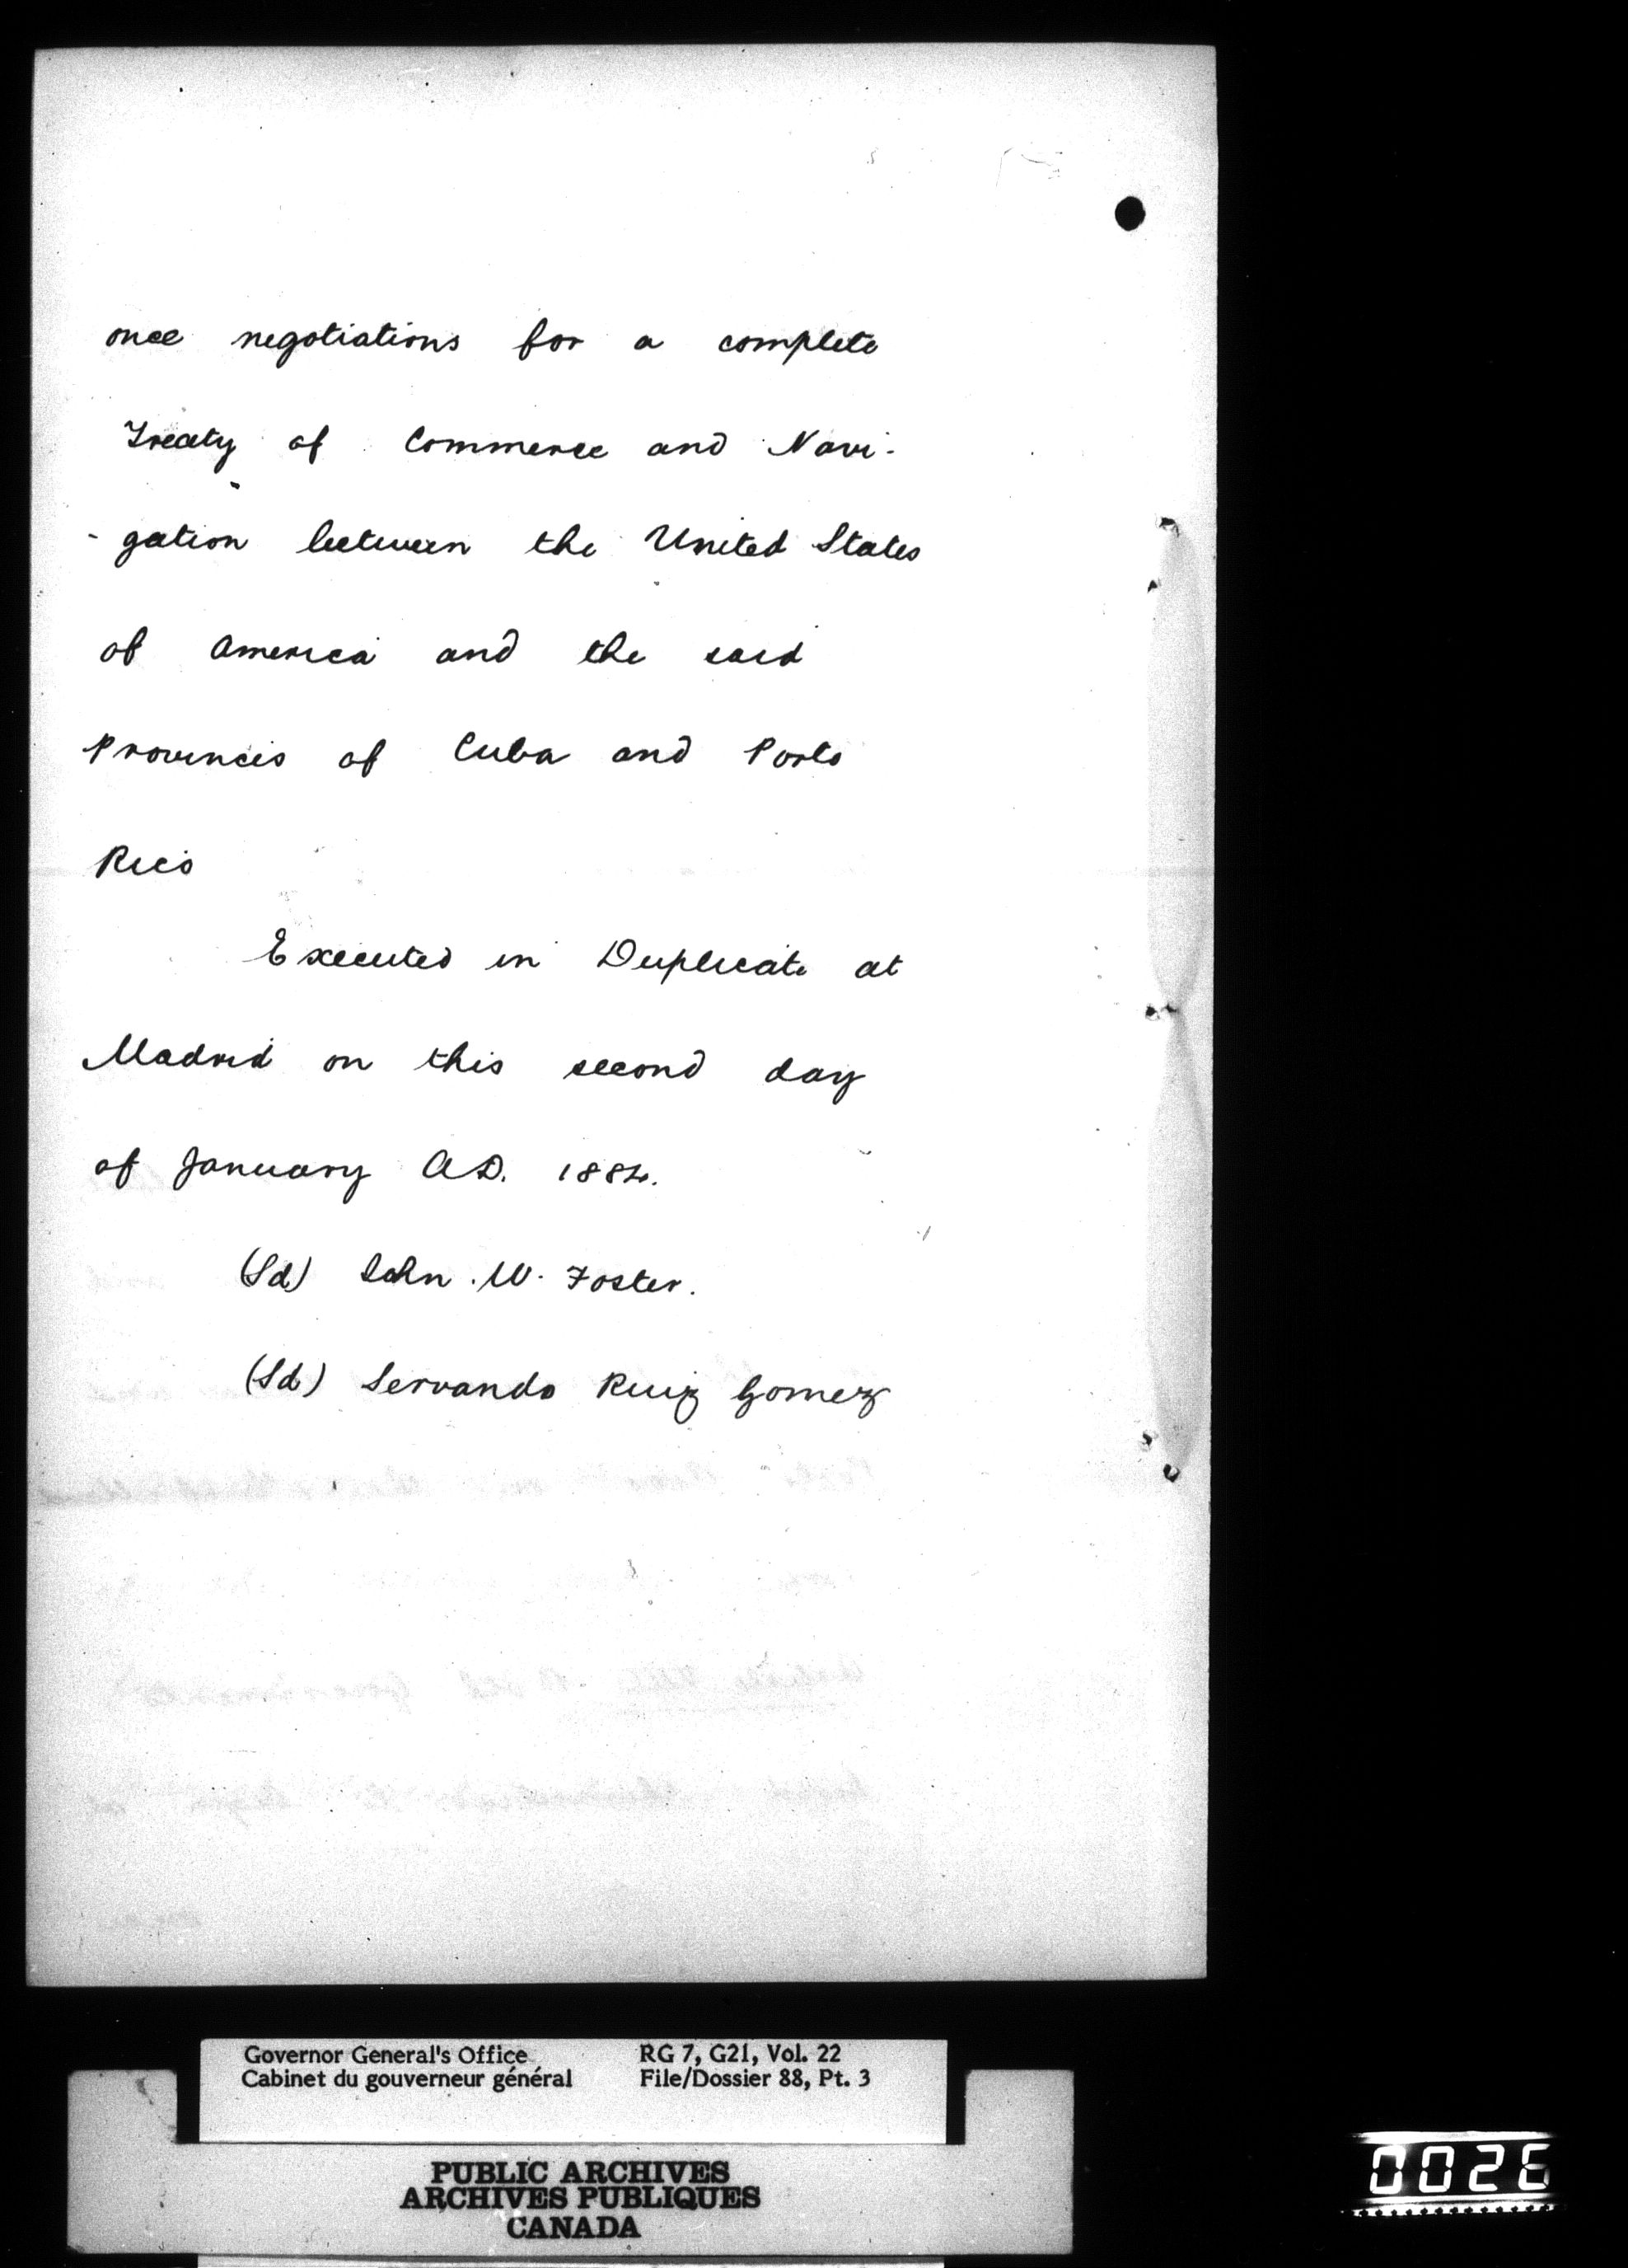 once negotiations for a complete
Treaty of Commerce and Navi-
-gation between the United States
of America and the said
Provinces of Cuba and Porto
Rico
Executed in Duplicate at
Madrid on this second day
of January A.D. 1884.
(Sd) John. W. Foster.
(Sd) Servando Ruiz Gomez
Governor General's Office RG 7, G21, Vol. 22
Cabinet du gouverneur général File/Dossier 88, Pt. 3
PUBLIC ARCHIVES
ARCHIVES PUBLIQUES
CANADA